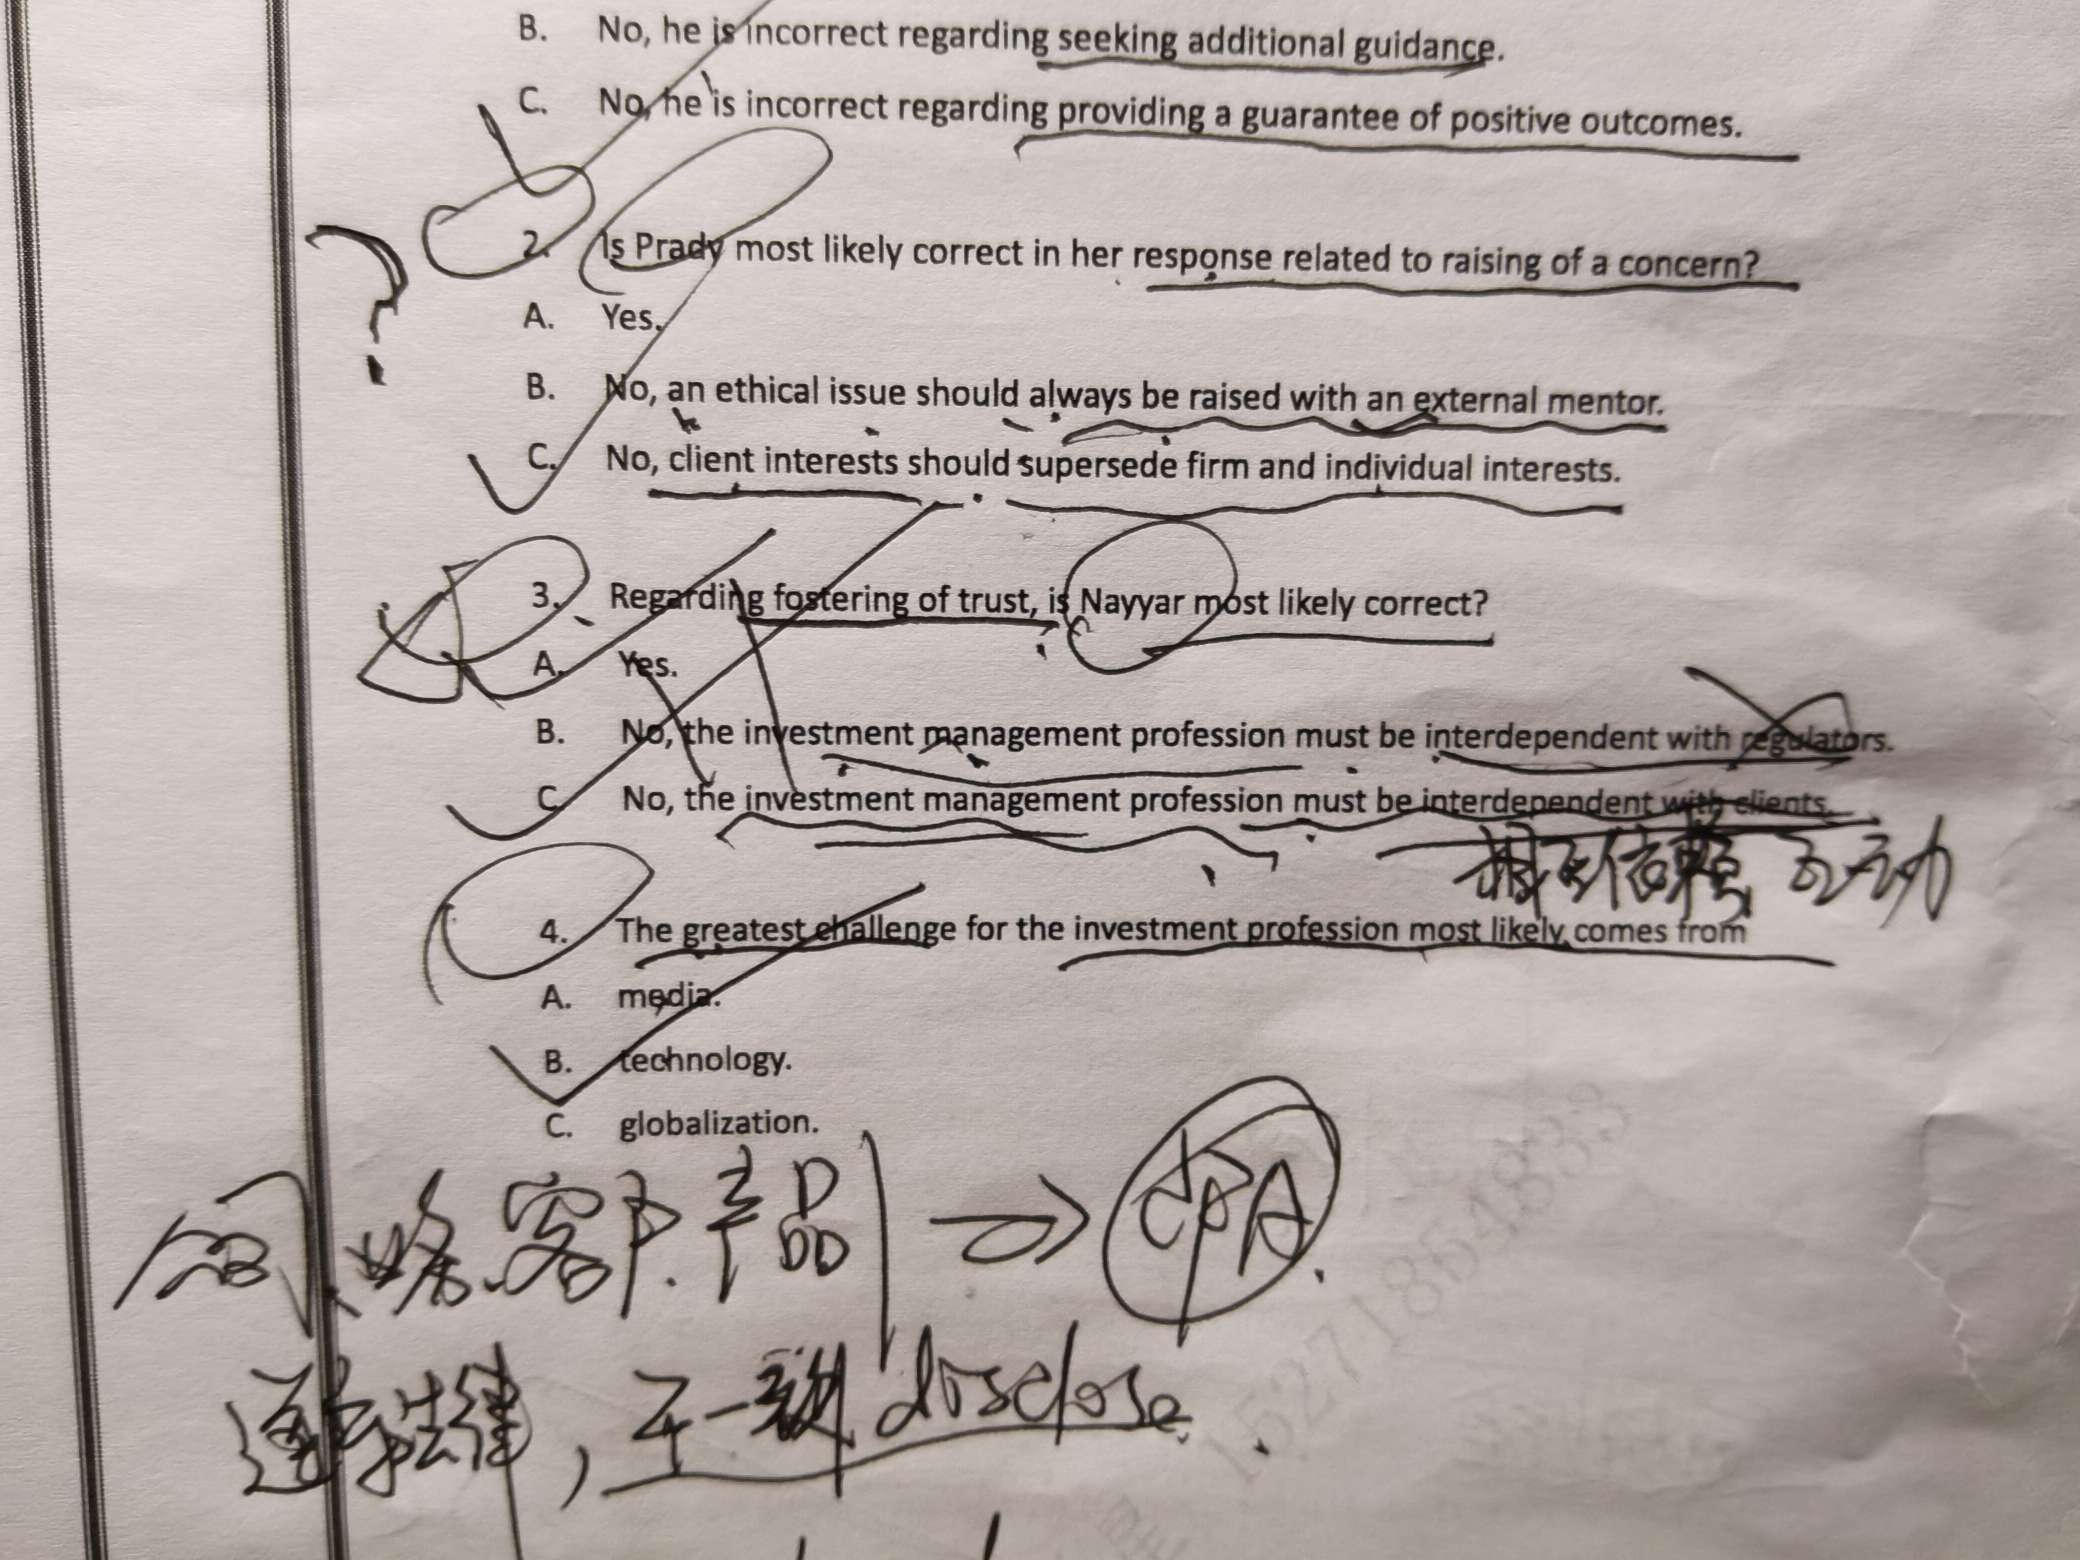 B. No, he is incorrect regarding seeking additional guidance.
C. No, he is incorrect regarding providing a guarantee of positive outcomes.
?
2. Is Prady most likely correct in her response related to raising of a concern?
A. Yes.
B. No, an ethical issue should always be raised with an external mentor.
C. No, client interests should supersede firm and individual interests.
3. Regarding fostering of trust, is Nayyar most likely correct?
A. Yes.
B. No, the investment management profession must be interdependent with regulators.
C. No, the investment management profession must be interdependent with clients.
相互信赖 互动
4. The greatest challenge for the investment profession most likely comes from
A. media.
B. technology.
C. globalization.
客户.产品 →
遵守法律, 不一致 disclose.
15271864833